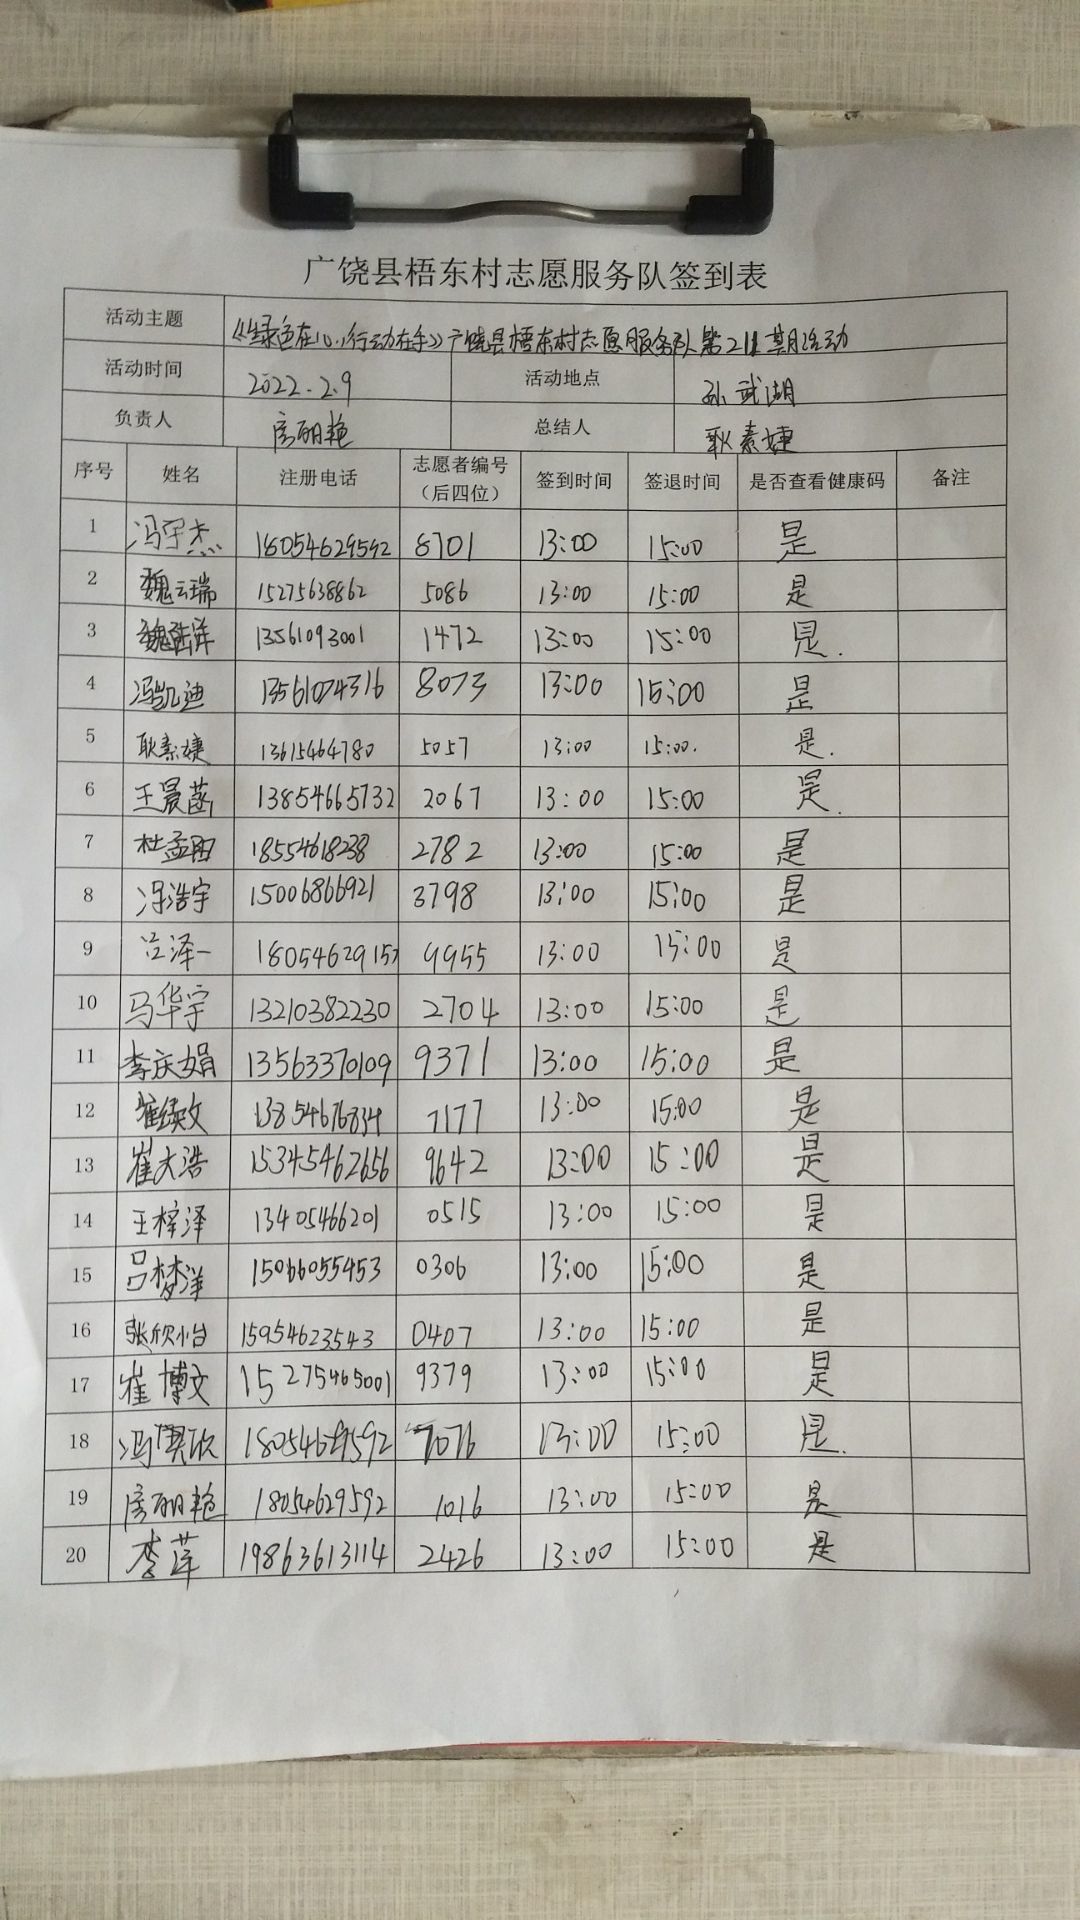 广饶县梧东村志愿服务队签到表
活动主题 《绿色在心,行动在手》广饶县梧东村志愿服务队第211期活动
活动时间 2022.2.9 活动地点 孙武湖
负责人 房丽艳 总结人 耿素婕
序号 姓名 注册电话 志愿者编号(后四位) 签到时间 签退时间 是否查看健康码 备注
1 冯宇杰 18054629592 8701 13:00 15:00 是
2 魏云瑞 15275638862 5086 13:00 15:00 是
3 13561093001 1472 13:00 15:00 是.
4 冯凯迪 13561074316 8073 13:00 15:00 是
5 耿素婕 13615464780 5057 13:00 15:00. 是.
6 王晨菡 13854665732 2067 13:00 15:00 是.
7 杜孟阳 18554618238 2782 13:00 15:00 是
8 冯浩宇 15006866921 3798 13:00 15:00 是
9 泽一 1805462915 9955 13:00 15:00 是
10 马华宇 13210382230 2704 13:00 15:00 是
11 李庆娟 13563370109 9371 13:00 15:00 是
12 崔续文 13854676834 7177 13:00 15:00 是
13 崔大浩 15345462656 9642 13:00 15:00 是
14 王梓泽 13405466201 0515 13:00 15:00 是
15 吕梦洋 15066055453 0306 13:00 15:00 是
16 张欣怡 15954623543 0407 13:00 15:00 是
17 崔博文 15275465001 9379 13:00 15:00 是
18 冯 欣 18054629592 7076 13:00 15:00 是.
19 房丽艳 18054629592 1016 13:00 15:00 是
20 李萍 19863613114 2426 13:00 15:00 是